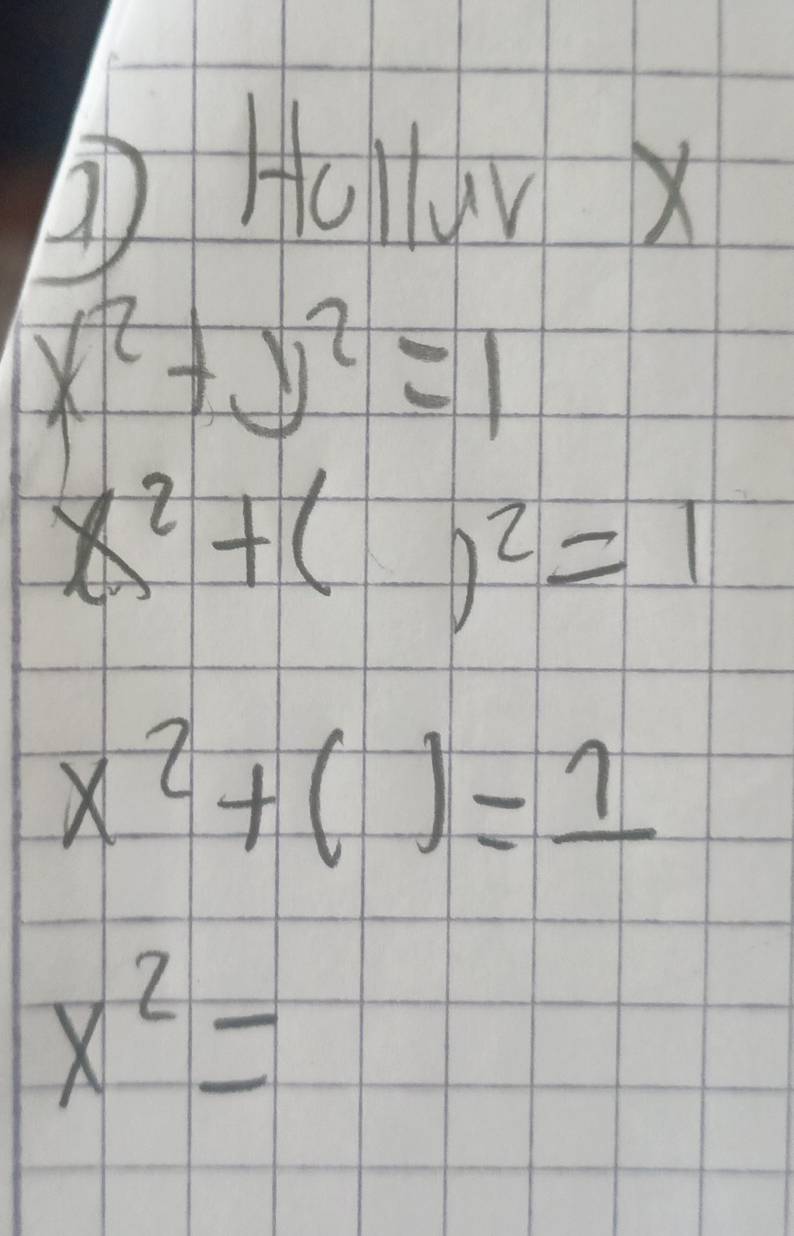 1) Halluv X
x² + y² = 1
x² + ( )² = 1
x² + ( ) = 1
x² =